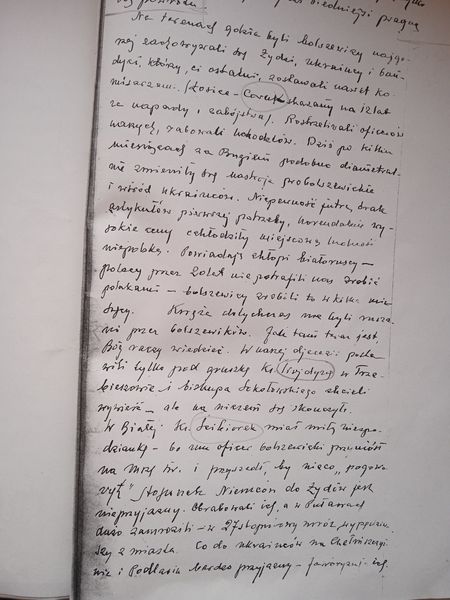 tej powstań
siedniejsi pragną
Na terenach gdzie byli bolszewicy najgo-
rzej zachowywali się Żydzi, ukraińcy i ban-
dyci, którzy, ci ostatni, zostawali nawet ko-
misarzami. (Łosice - Caruk skazany na 12 lat
za napady i zabójstwa). Rozstrzelali oficerów
naszych, rabowali uchodźców. Dziś po kilku
miesiącach za Bugiem podobno diametral-
nie zmieniły się nastroje probolszewickie
i wśród ukraińców. Niepewność jutra, brak
artykułów pierwszej potrzeby, horendalnie wy-
sokie ceny ochłodziły miejscową ludność
niepolską. Powiadają chłopi białoruscy —
polacy przez 20 lat nie potrafili nas zrobić
polakami — bolszewicy zrobili to w kilka mie-
sięcy. Księża dotychczas nie byli rusza-
ni przez bolszewików. Jak tam teraz jest
Bóg raczy wiedzieć. W naszej djecezji posta-
wili tylko pod gruszką Ks. w Trze-
bieszowie i biskupa Sokołowskiego chcieli
wywieźć — ale na niczem się skończyło.
W Białej Ks. Ścibiorek miał miłą niespo-
dziankę — bo mu oficer bolszewicki przyniósł
na Mszę św. i przyszedł, by nieco „pogowo-
ryt'" Stosunek Niemców do Żydów jest
nieprzyjazny. Obrabowali ich, a w Puławach
dużo zamrozili — w 27 stopniowy mróz wypędzi-
li z miasta. Co do ukraińców na Chełmszczyź-
nie i Podlasiu bardzo przyjazny — faworyzuj- ich.